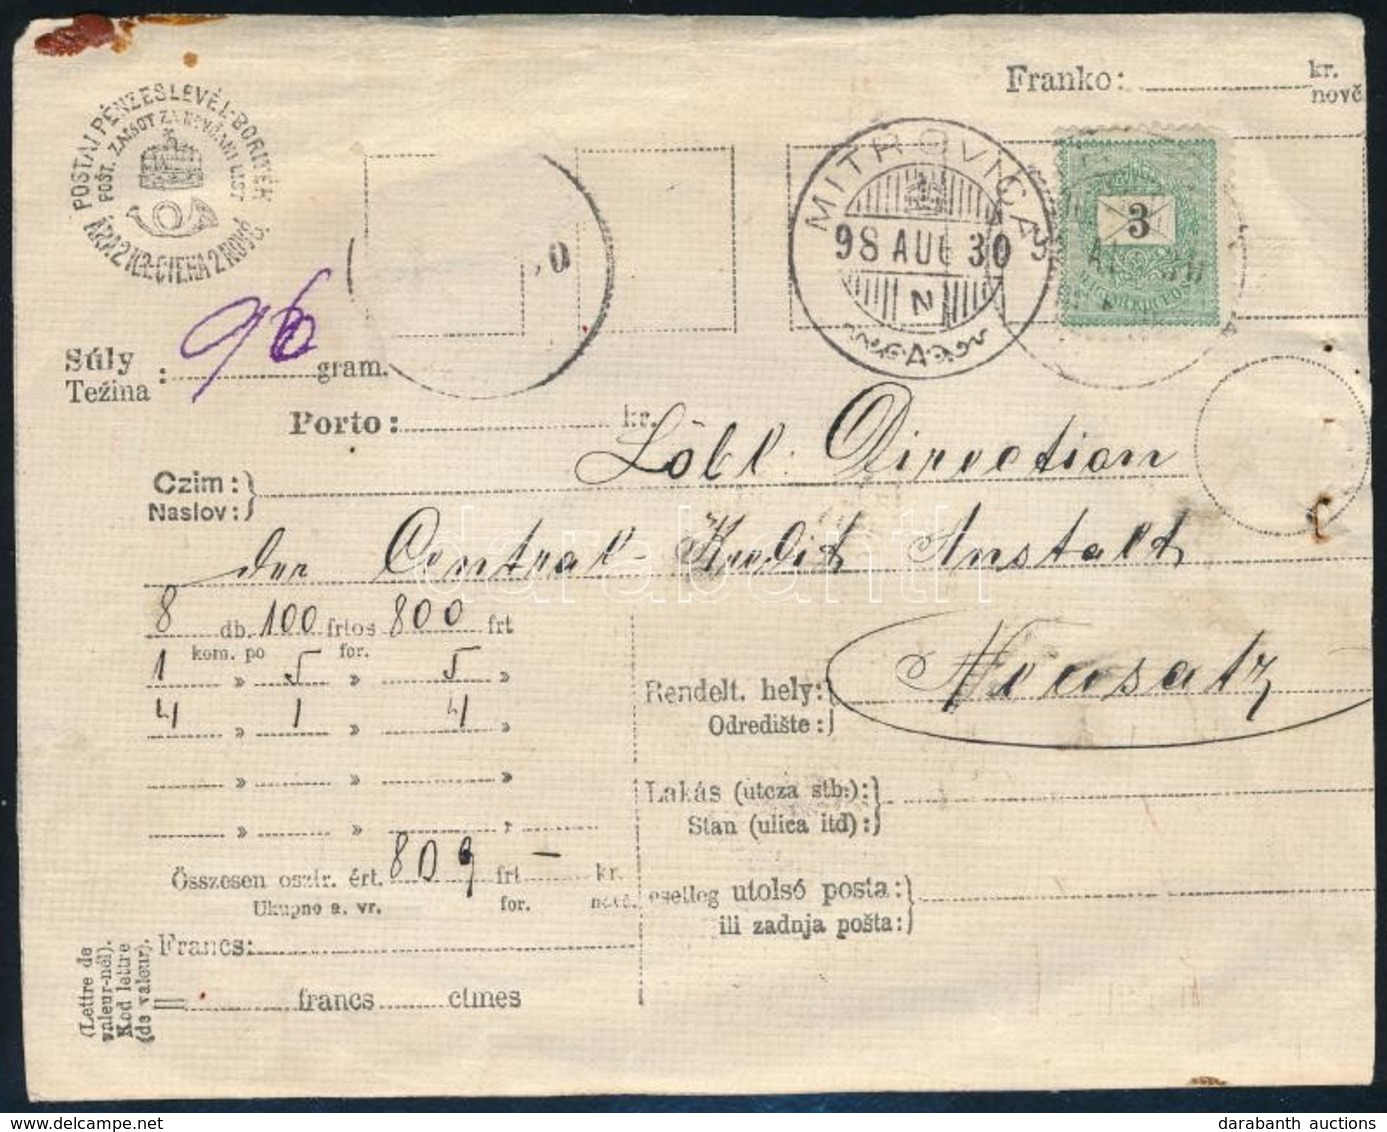 Franko: kr.
novč.
POSTAI PÉNZESLEVÉL-BORITÉK
POŠT. ZAMOT ZA NOVČANI LIST
ÁRA 2 KR.-CIENA 2 NOVČ.
MITROVICA
98 AUG 30
N
A
3
96
Súly
Težina : gram.
Porto: kr.
Czim:
Naslov:
Löbl. Direction
der Central-Kredit Anstalt
8 db. 100 frtos 800 frt
kom. po for.
1 » 5 » 5 »
4 » 1 » 4 »
» » »
» »
Rendelt. hely:
Odredište:
Lakás (utcza stb.):
Stan (ulica itd):
Összesen osztr. ért. 809 frt — kr.
Ukupno a. vr. for. novč.
esetleg utolsó posta:
ili zadnja pošta:
(Lettre de
valeur-nél).
Kod lettre
(de valeur).
Francs:
= francs ctmes
darabanth
darabanth auctions